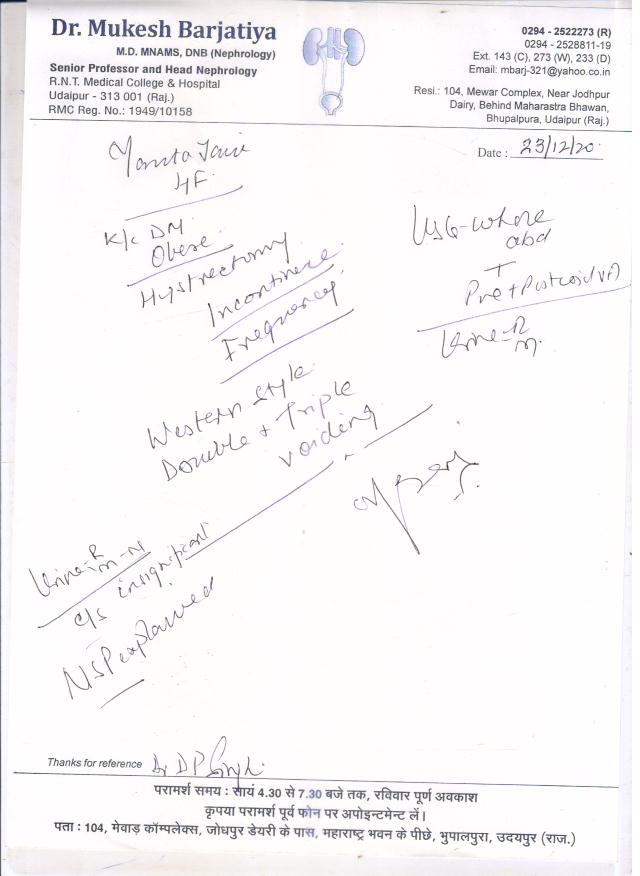 Dr. Mukesh Barjatiya
M.D. MNAMS, DNB (Nephrology)
Senior Professor and Head Nephrology
R.N.T. Medical College & Hospital
Udaipur - 313 001 (Raj.)
RMC Reg. No.: 1949/10158
0294 - 2522273 (R)
0294 - 2528811-19
Ext. 143 (C), 273 (W), 233 (D)
Email: mbarj-321@yahoo.co.in
Resi.: 104, Mewar Complex, Near Jodhpur
Dairy, Behind Maharastra Bhawan,
Bhupalpura, Udaipur (Raj.)
Date : 23/12/20
K/c DM
Obese
Hystrectomy
Incontinence
Frequency
USG-Whole
abd
+
Pre + Postvoid
Urine-R
m.
Western style
Double + Triple
voiding
Urine-R
m-N
c/s insignificant
NSP explained
Thanks for reference Dr D P Singh.
परामर्श समय : सायं 4.30 से 7.30 बजे तक, रविवार पूर्ण अवकाश
कृपया परामर्श पूर्व फोन पर अपोइन्टमेन्ट लें।
पता : 104, मेवाड़ कॉम्पलेक्स, जोधपुर डेयरी के पास, महाराष्ट्र भवन के पीछे, भुपालपुरा, उदयपुर (राज.)